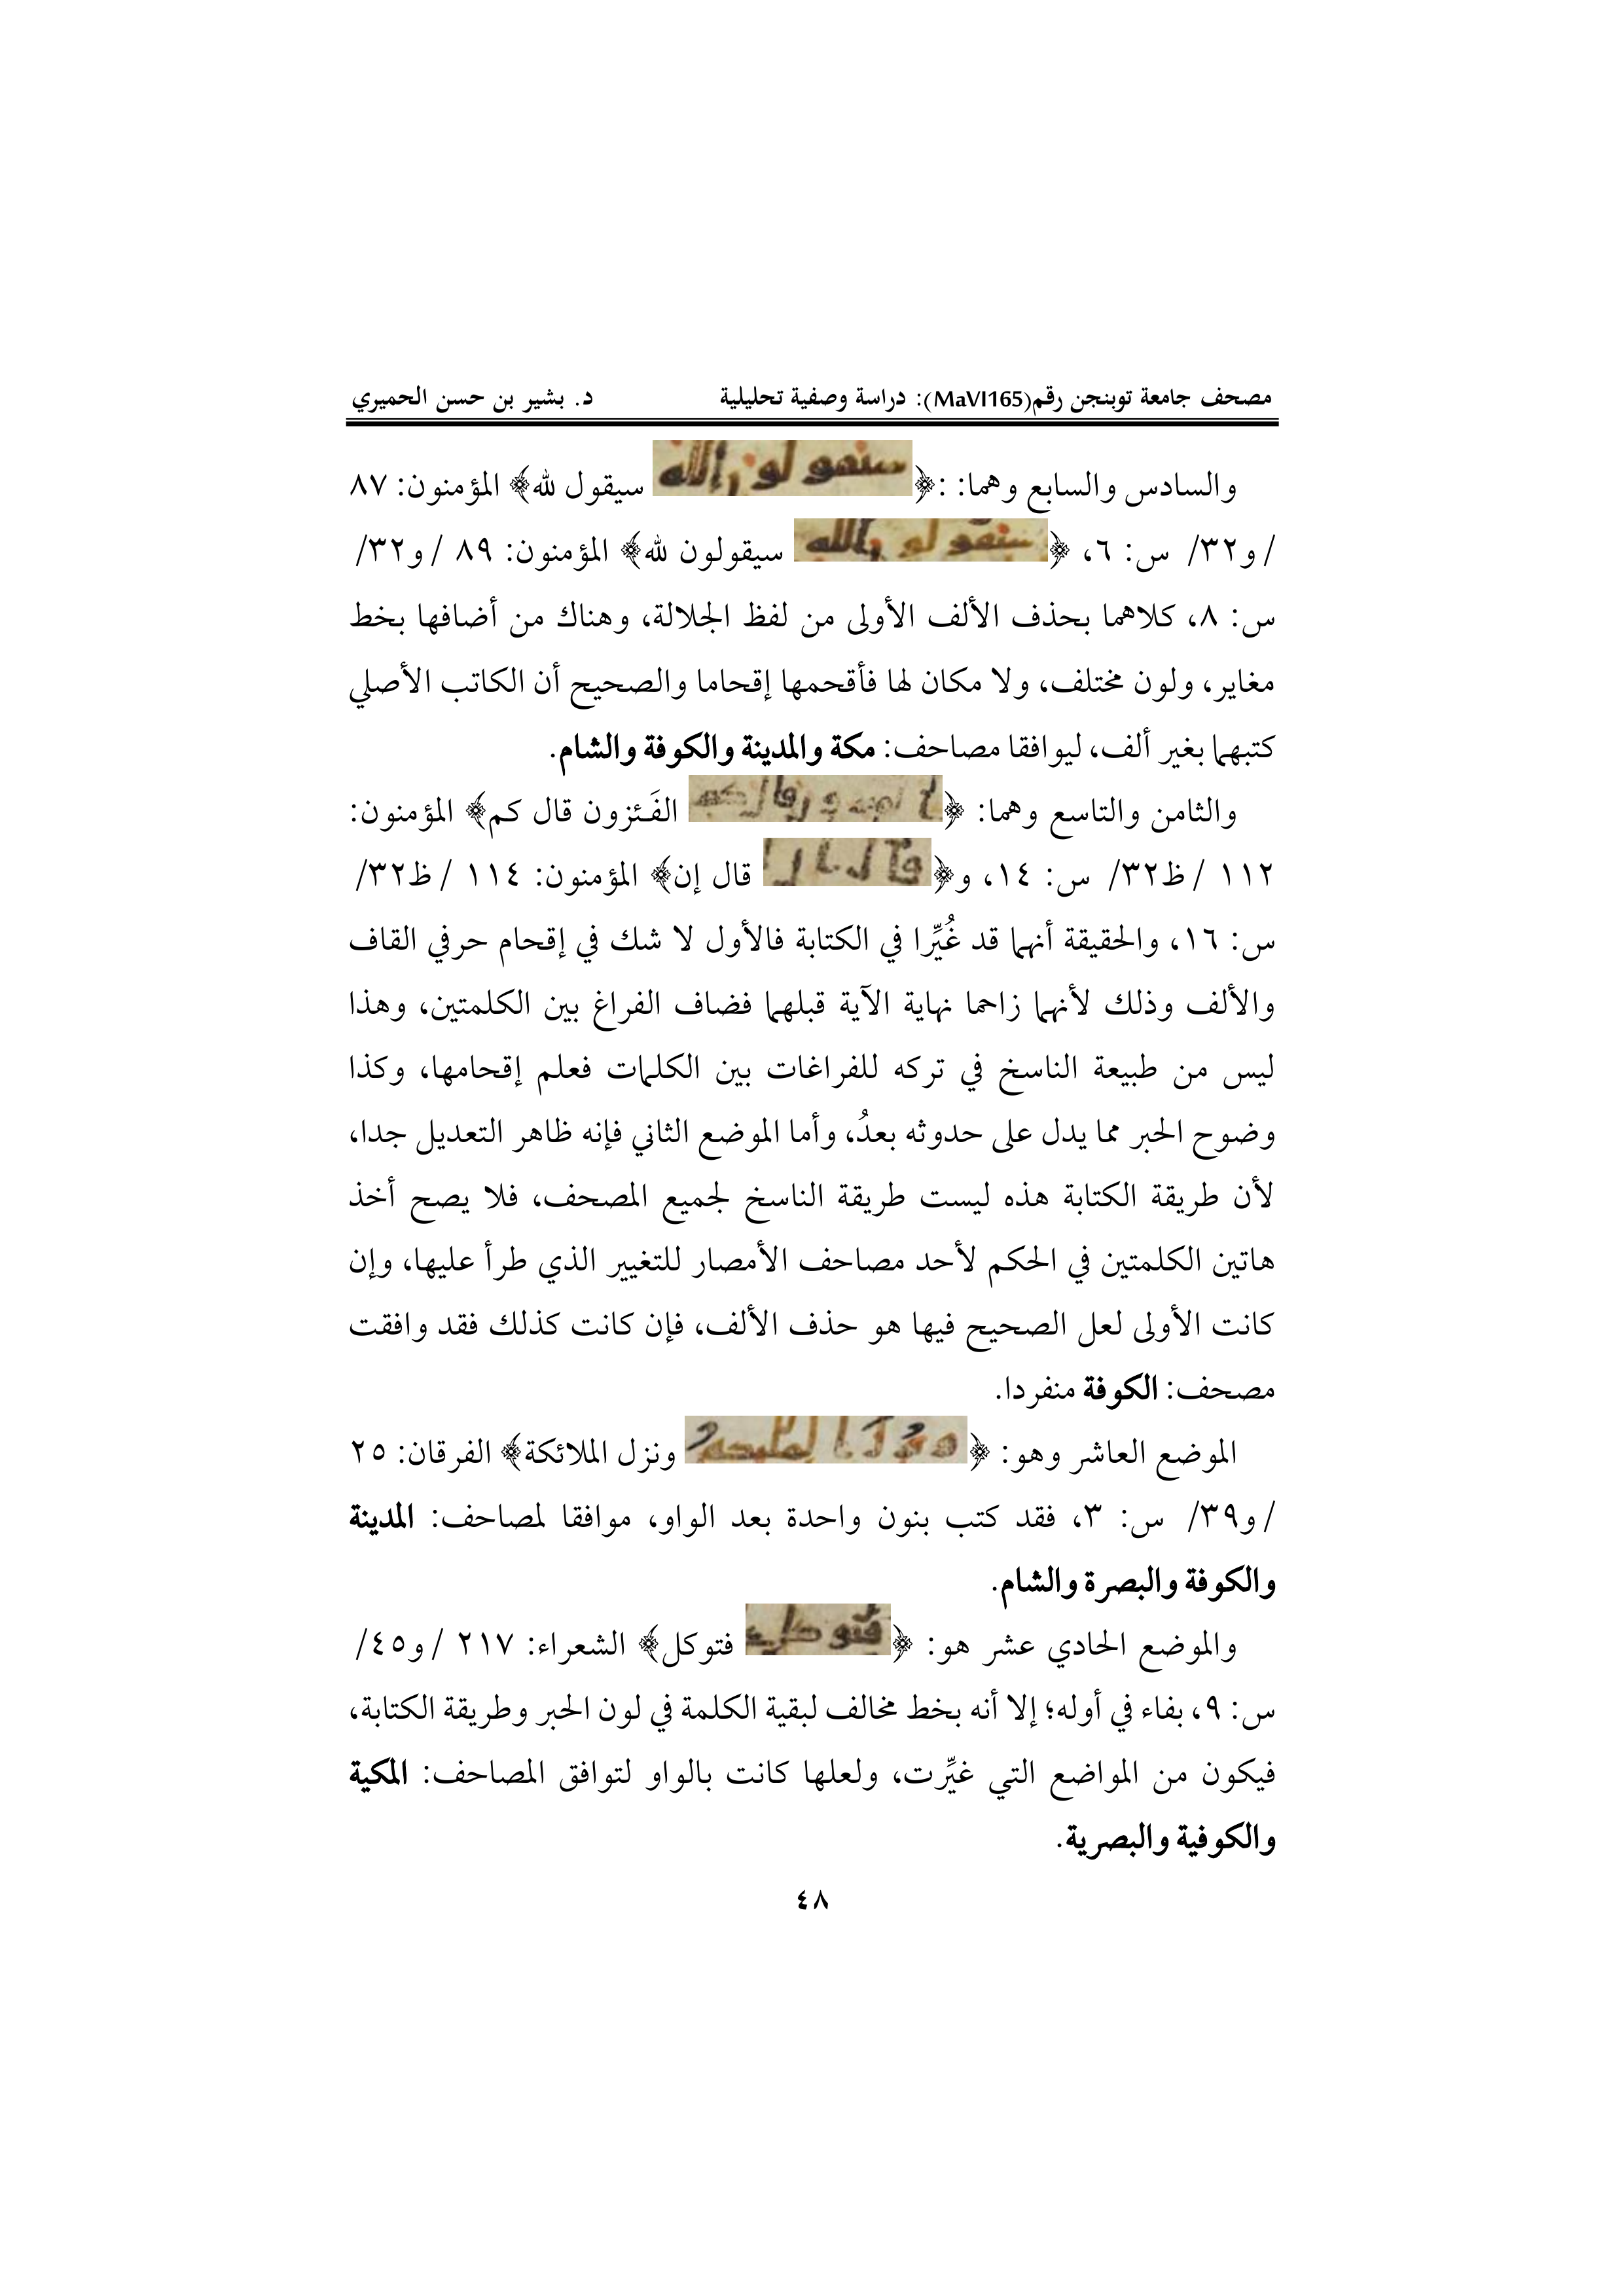 مصحف جامعة توبنجن رقم(MaVI165): دراسة وصفية تحليلية د. بشير بن حسن الحميري
والسادس والسابع وهما: :﴿ سيقول لله﴾ المؤمنون: ٨٧
/و٣٢/ س: ٦، ﴿ سيقولون لله﴾ المؤمنون: ٨٩ /و٣٢/
س: ٨، كلاهما بحذف الألف الأولى من لفظ الجلالة، وهناك من أضافها بخط
مغاير، ولون مختلف، ولا مكان لها فأقحمها إقحاما والصحيح أن الكاتب الأصلي
كتبهما بغير ألف، ليوافقا مصاحف: مكة والمدينة والكوفة والشام.
والثامن والتاسع وهما: ﴿ الفَـئزون قال كم﴾ المؤمنون:
١١٢ /ظ٣٢/ س: ١٤، و﴿ قال إن﴾ المؤمنون: ١١٤ /ظ٣٢/
س: ١٦، والحقيقة أنهما قد غُيِّرا في الكتابة فالأول لا شك في إقحام حرفي القاف
والألف وذلك لأنهما زاحما نهاية الآية قبلهما فضاف الفراغ بين الكلمتين، وهذا
ليس من طبيعة الناسخ في تركه للفراغات بين الكلمات فعلم إقحامها، وكذا
وضوح الحبر مما يدل على حدوثه بعدُ، وأما الموضع الثاني فإنه ظاهر التعديل جدا،
لأن طريقة الكتابة هذه ليست طريقة الناسخ لجميع المصحف، فلا يصح أخذ
هاتين الكلمتين في الحكم لأحد مصاحف الأمصار للتغيير الذي طرأ عليها، وإن
كانت الأولى لعل الصحيح فيها هو حذف الألف، فإن كانت كذلك فقد وافقت
مصحف: الكوفة منفردا.
الموضع العاشر وهو: ﴿ ونزل الملائكة﴾ الفرقان: ٢٥
/و٣٩/ س: ٣، فقد كتب بنون واحدة بعد الواو، موافقا لمصاحف: المدينة
والكوفة والبصرة والشام.
والموضع الحادي عشر هو: ﴿ فتوكل﴾ الشعراء: ٢١٧ /و٤٥/
س: ٩، بفاء في أوله؛ إلا أنه بخط مخالف لبقية الكلمة في لون الحبر وطريقة الكتابة،
فيكون من المواضع التي غيِّرت، ولعلها كانت بالواو لتوافق المصاحف: المكية
والكوفية والبصرية.
٤٨